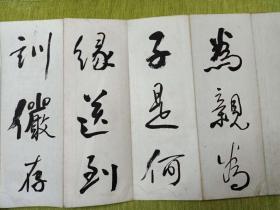 為親為
子是何
緣送到
訓儼存